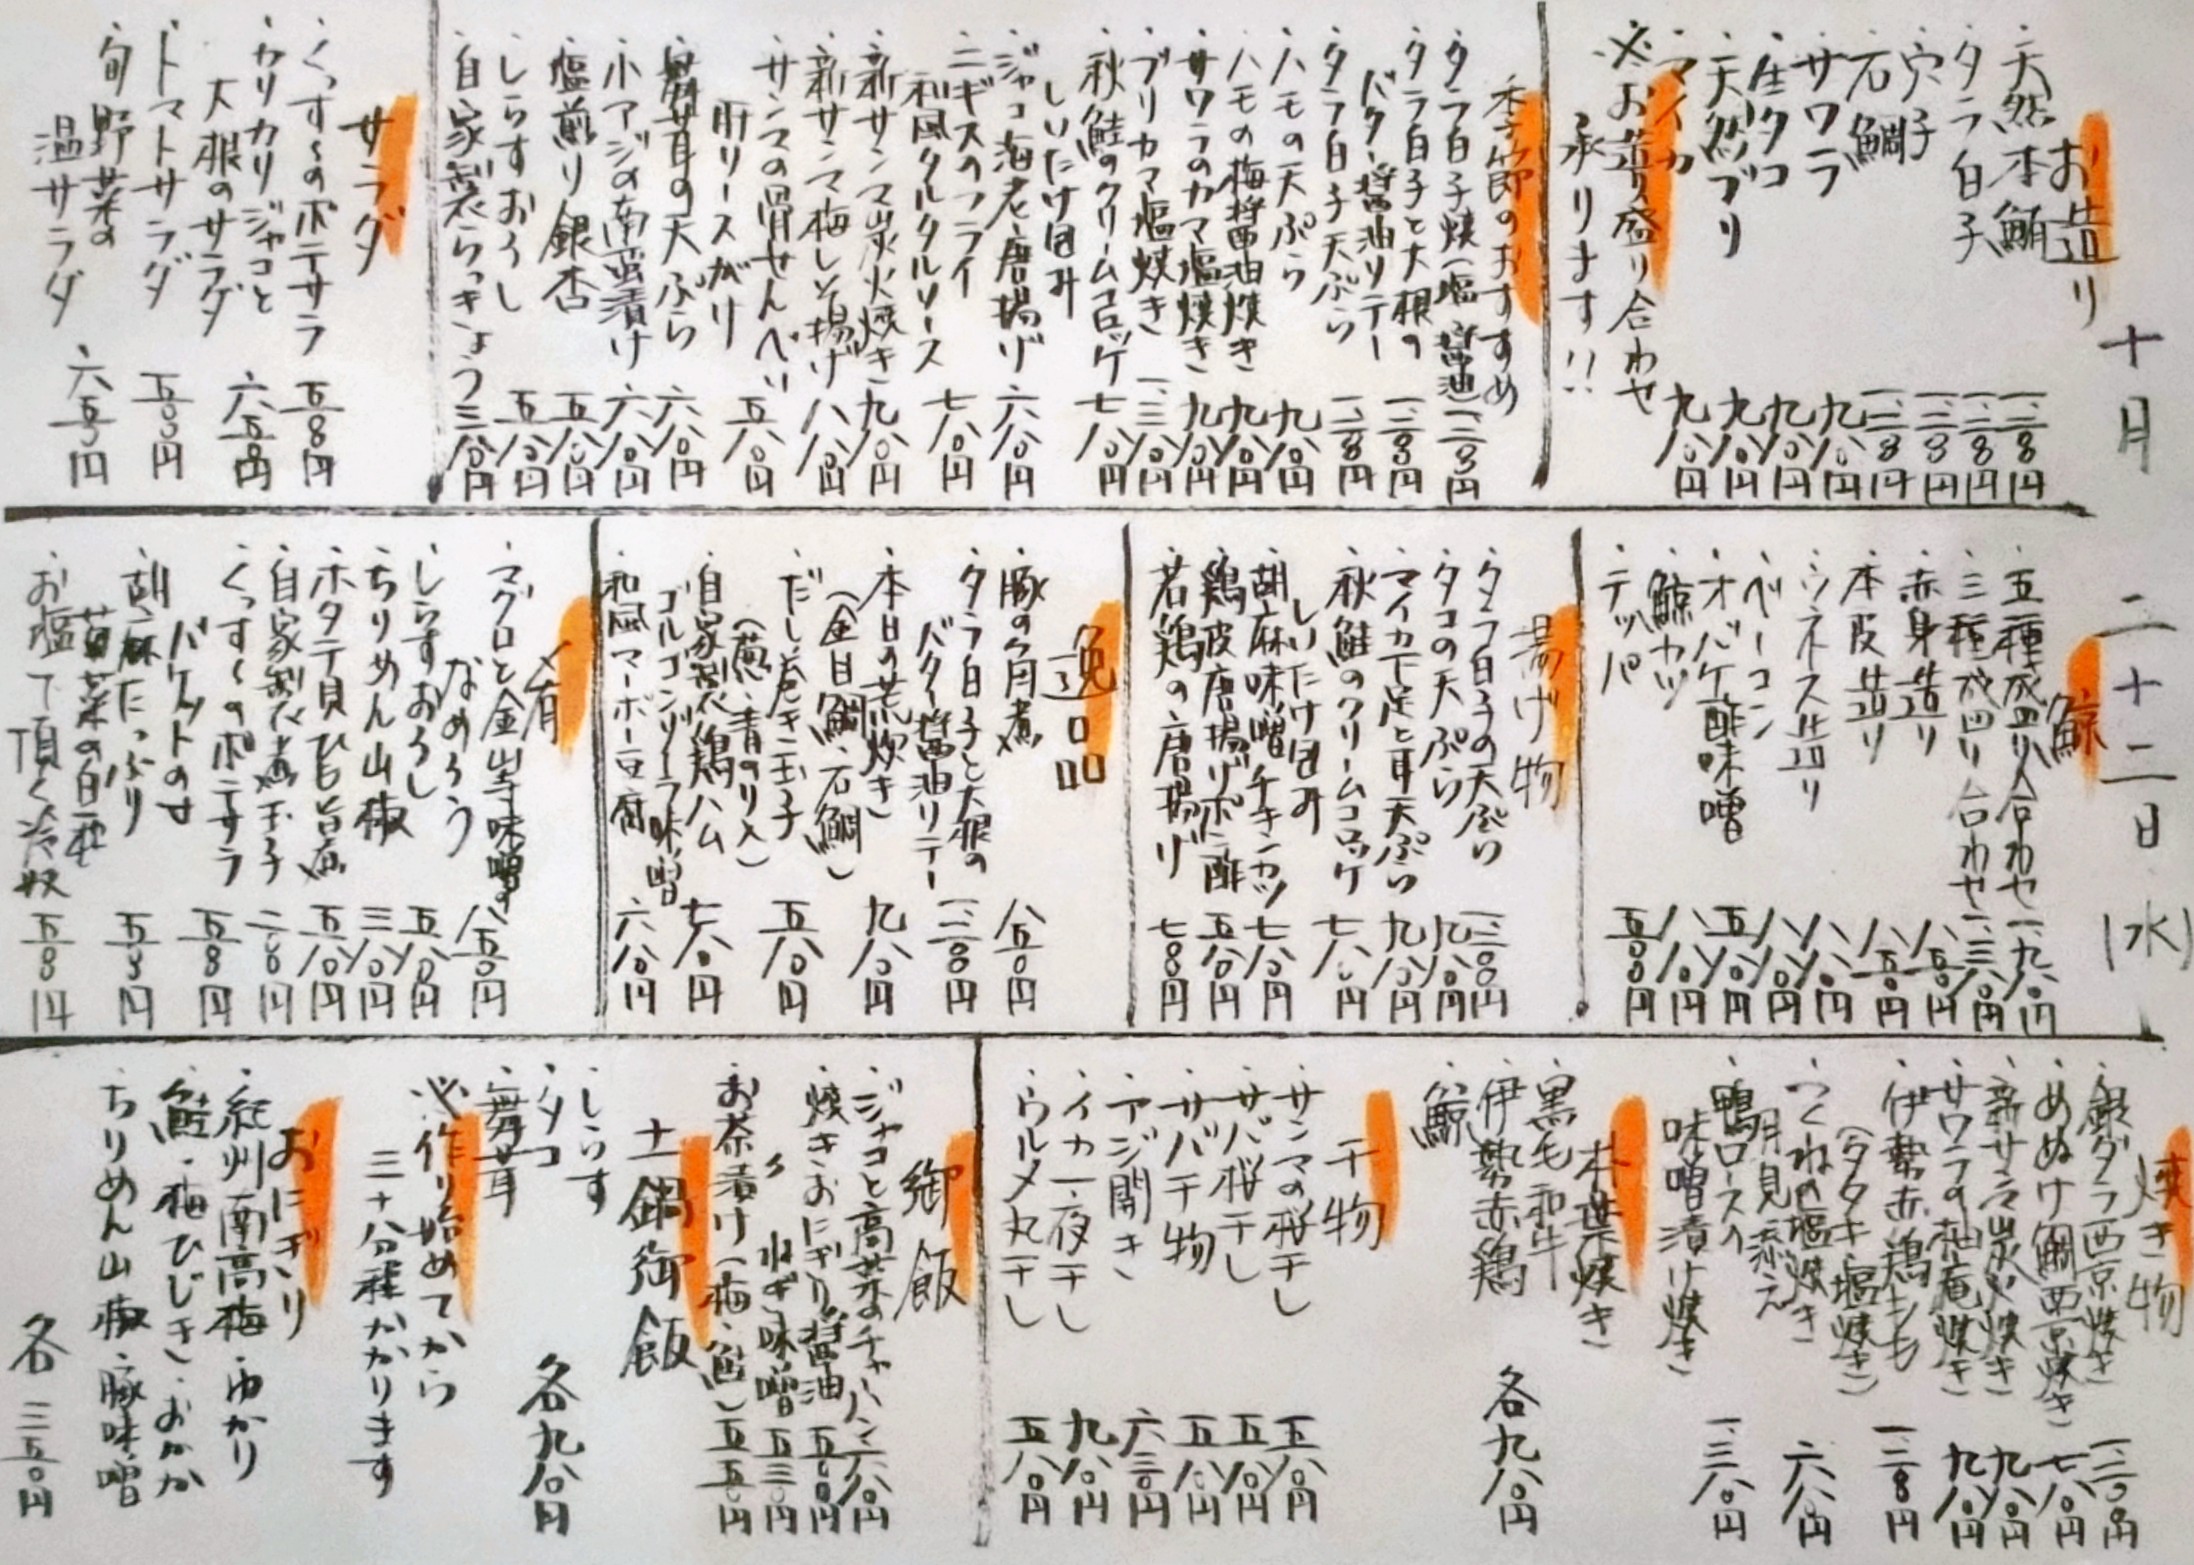 十月二十二日(水)
お造り
・天然本鮪 一、二〇〇円
・タラ白子 一、二〇〇円
・穴子 一、二〇〇円
・石鯛 一、二〇〇円
・サワラ 九八〇円
・生タコ 九八〇円
・天然ブリ 九八〇円
・マイカ 九八〇円
※お造り盛り合わせ
承ります!!
季節のおすすめ
・タラ白子焼(塩・醤油) 一、二〇〇円
・タラ白子と大根の
バター醤油ソテー 一、二〇〇円
・タラ白子天ぷら 一、二〇〇円
・ハモの天ぷら 九八〇円
・ハモの梅醤油焼き 九八〇円
・サワラのカマ塩焼き 九八〇円
・ブリカマ塩焼き 一、三八〇円
・秋鮭のクリームコロッケ
しいたけ包み 七八〇円
・ジャコ海老唐揚げ 六八〇円
・ニギスのフライ
和風タルタルソース 七八〇円
・新サンマ炭火焼き 九八〇円
・新サンマ梅しそ揚げ 八八〇円
・サンマの骨せんべい
肝ソースがけ 五八〇円
・舞茸の天ぷら 六八〇円
・小アジの南蛮漬け 六八〇円
・塩煎り銀杏 五八〇円
・しらすおろし 五八〇円
・自家製らっきょう 三八〇円
サラダ
・くっす〜のポテサラ 五〇〇円
・カリカリジャコと
大根のサラダ 六五〇円
・トマトサラダ 五〇〇円
・旬野菜の
温サラダ 六五〇円
鯨
・五種盛り合わせ 一、九八〇円
・三種盛り合わせ 一、三八〇円
・赤身造り 八五〇円
・本皮造り 八五〇円
・ウネス造り 八八〇円
・ベーコン 八八〇円
・オバケ酢味噌 五八〇円
・鯨カツ 八八〇円
・テッパ 五〇〇円
揚げ物
・タラ白子の天ぷら 一、二〇〇円
・タコの天ぷら 九八〇円
・マイカ下足と耳天ぷら 九八〇円
・秋鮭のクリームコロッケ
しいたけ包み 七八〇円
・胡麻味噌チキンカツ 七八〇円
・鶏皮唐揚げポン酢 五八〇円
・若鶏の唐揚げ 七〇〇円
逸品
・豚の角煮 八五〇円
・タラ白子と大根の
バター醤油ソテー 一、二〇〇円
・本日の荒炊き
(金目鯛・石鯛) 九八〇円
・だし巻き玉子
(葱・青のり入) 五八〇円
・自家製鶏ハム
ゴルゴンゾーラ味噌 七八〇円
・和風マーボー豆腐 六八〇円
〆肴
・マグロと金山寺味噌の
なめろう 八五〇円
・しらすおろし 五八〇円
・ちりめん山椒 三八〇円
・ホタテ貝ひも旨煮 五八〇円
・自家製煮玉子 二八〇円
・くっす〜のポテサラ
バケットのせ 五〇〇円
・胡麻たっぷり
菊菜の白和 五五〇円
・お塩で頂く冷奴 五〇〇円
焼き物
・銀ダラ西京焼き 一、二〇〇円
・めぬけ鯛西京焼き 七八〇円
・新サンマ炭火焼き 九八〇円
・サワラの柚庵焼き 九八〇円
・伊勢赤鶏もも
(タタキ・塩焼き) 一、二〇〇円
・つくねの塩焼き
月見添え 六八〇円
・鴨ロースの
味噌漬け焼き 一、三八〇円
朴葉焼き
・黒毛和牛
・伊勢赤鶏
・鯨 各九八〇円
干物
・サンマの桜干し 五八〇円
・サバ桜干し 五八〇円
・サバ干物 五八〇円
・アジ開き 六三〇円
・イカ一夜干し 九八〇円
・ウルメ丸干し 五八〇円
御飯
・ジャコと高菜のチャーハン 六八〇円
・焼きおにぎり醤油 五〇〇円
・〃 ねぎ味噌 五三〇円
・お茶漬け(梅・鮭) 五五〇円
土鍋御飯
・しらす
・タコ
・舞茸 各九八〇円
※作り始めてから
三十分程かかります
おにぎり
・紀州南高梅・ゆかり
・鮭・梅ひじき・おかか
・ちりめん山椒・豚味噌
各三五〇円